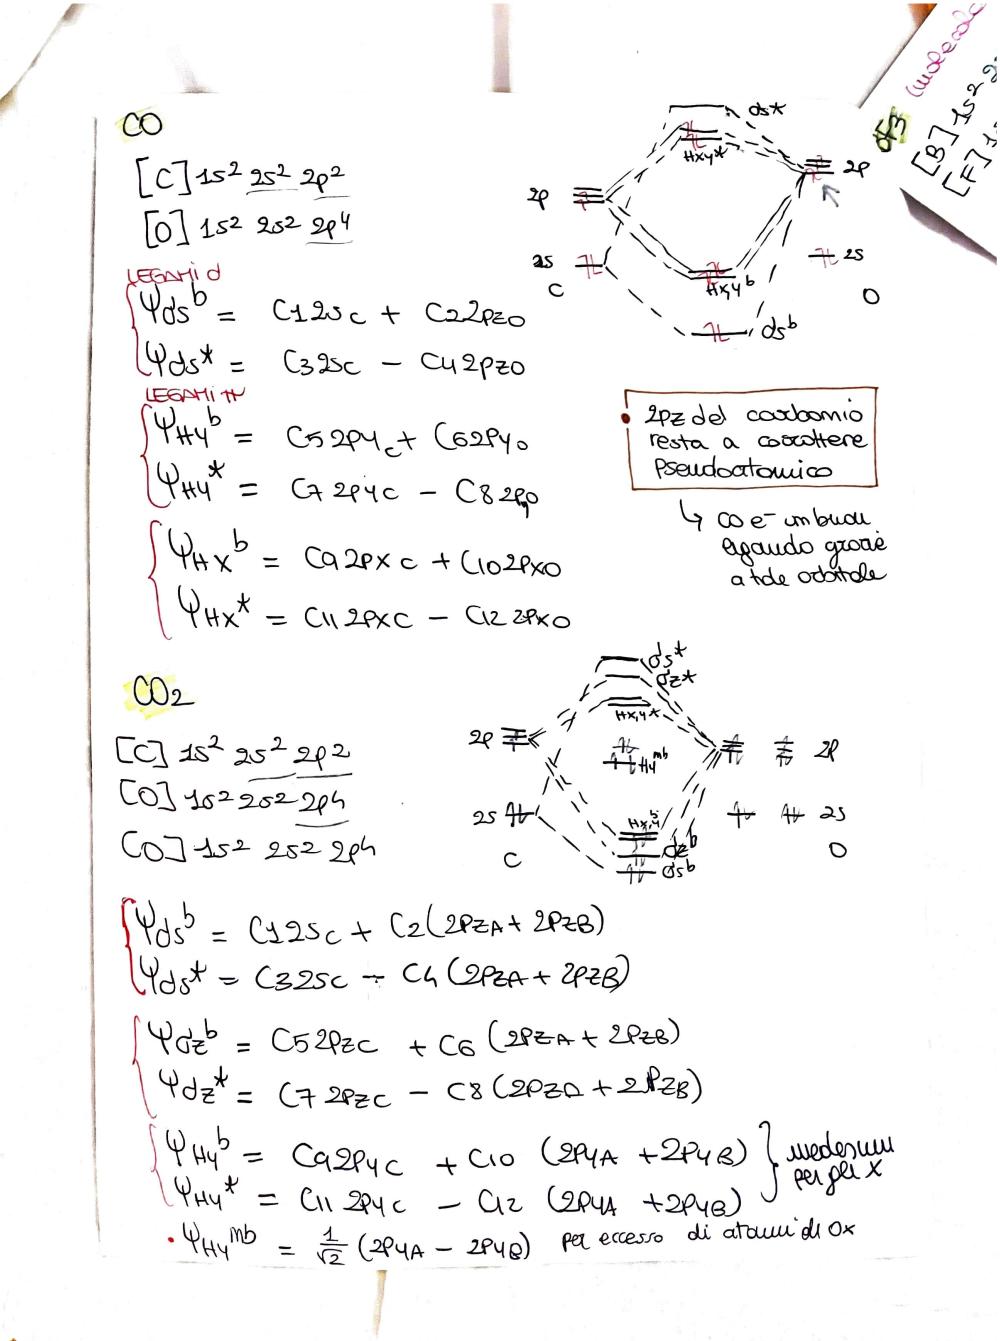 CO
[C] 1s² 2s² 2p²
[O] 1s² 2s² 2p⁴
LEGAMI σ
Ψσsᵇ = C1 2sC + C2 2pzO
Ψσs* = C3 2sC - C4 2pzO
LEGAMI π
Ψπyᵇ = C5 2pyC + C6 2pyO
Ψπy* = C7 2pyC - C8 2pyO
Ψπxᵇ = C9 2pxC + C10 2pxO
Ψπx* = C11 2pxC - C12 2pxO
σs*
πxy*
2p
2p
2s
2s
C
O
πx,yᵇ
σsᵇ
• 2pz del carbonio
resta a carattere
pseudoatomico
↳ CO è un buon
ligando grazie
a tale orbitale
BF3
[B] 1s² 2s
[F] 1s
CO2
[C] 1s² 2s² 2p²
[O] 1s² 2s² 2p4
[O] 1s² 2s² 2p4
σs*
σz*
πx,y*
2p
πyⁿᵇ
2p
2s
2s
πx,yᵇ
σzᵇ
σsᵇ
C
O
Ψσsᵇ = C1 2sC + C2 (2pzA + 2pzB)
Ψσs* = C3 2sC - C4 (2pzA + 2pzB)
Ψσzᵇ = C5 2pzC + C6 (2pzA + 2pzB)
Ψσz* = C7 2pzC - C8 (2pzA + 2pzB)
Ψπyᵇ = C9 2pyC + C10 (2pyA + 2pyB)
Ψπy* = C11 2pyC - C12 (2pyA + 2pyB)
medesimi
per gli x
• Ψπyⁿᵇ = 1/√2 (2pyA - 2pyB) per eccesso di atomi di Ox